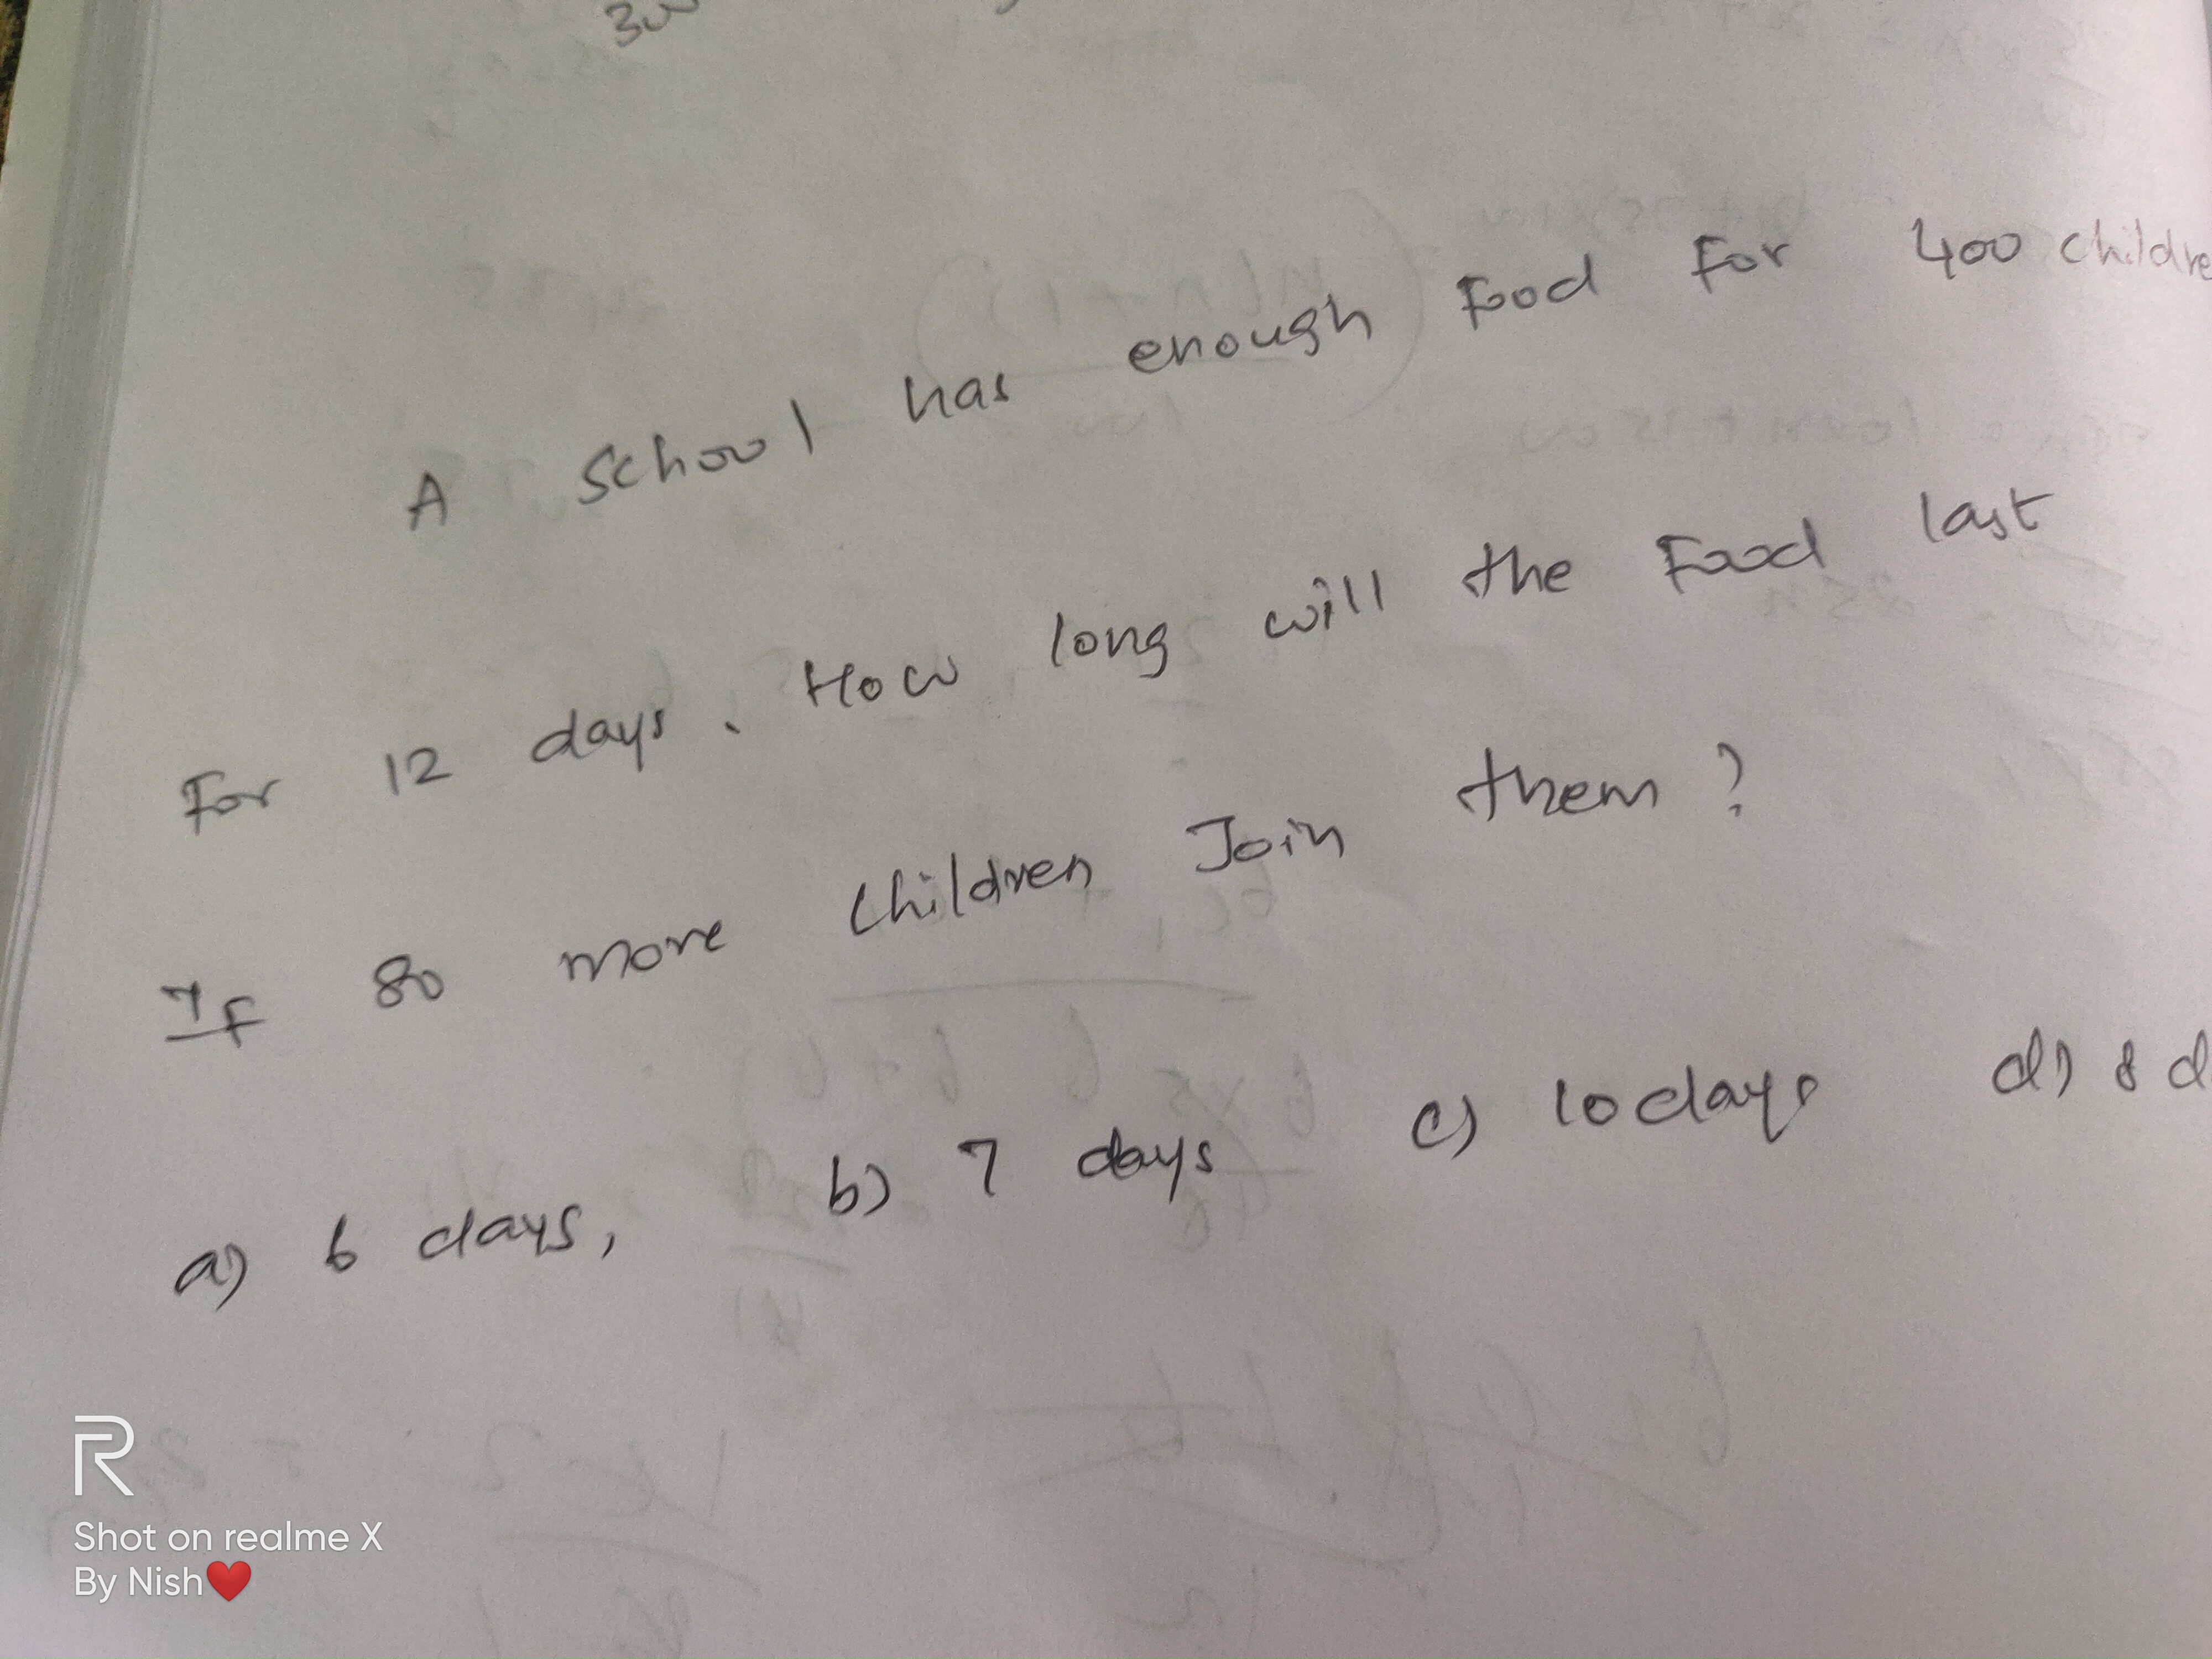 A School has enough Food For 400 childre
For 12 days. How long will the Food last
If 80 more children Join them?
a) 6 days, b) 7 days c) 10 days d) 8 d
R
Shot on realme X
By Nish❤️